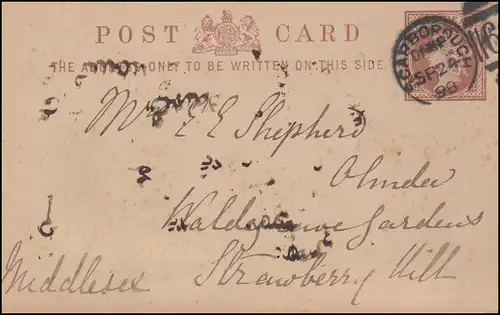 POST CARD
THE ADDRESS ONLY TO BE WRITTEN ON THIS SIDE.
SCARBOROUGH
SP 24
99
Mrs E E Shepherd
Olmder
Waldgrave Gardens
Strawberry Hill
Middlesex